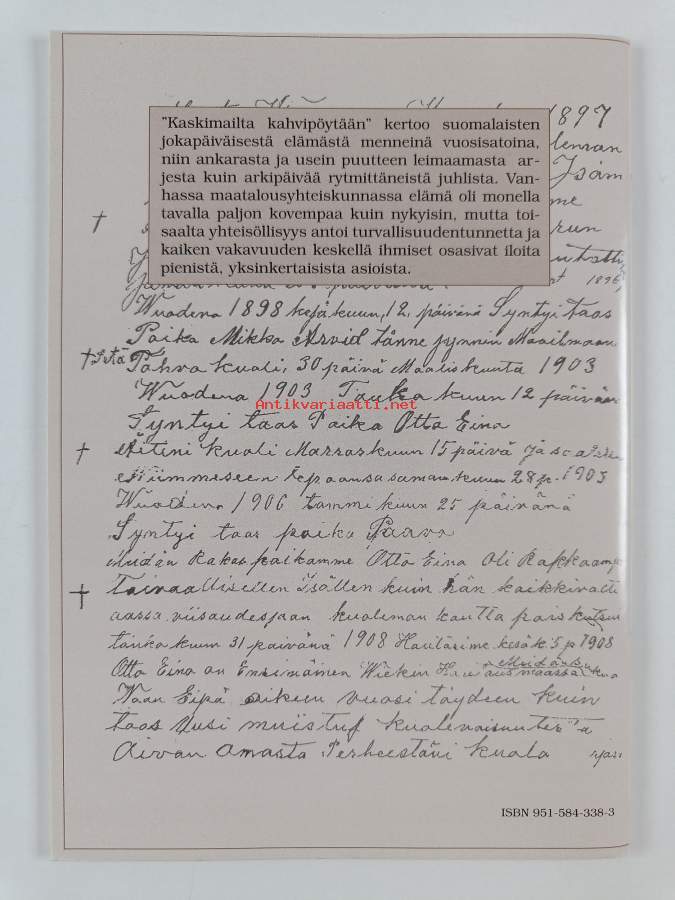 1897
"Kaskimailta kahvipöytään" kertoo suomalaisten
jokapäiväisestä elämästä menneinä vuosisatoina,
niin ankarasta ja usein puutteen leimaamasta ar-
jesta kuin arkipäivää rytmittäneistä juhlista. Van-
hassa maatalousyhteiskunnassa elämä oli monella
tavalla paljon kovempaa kuin nykyisin, mutta toi-
saalta yhteisöllisyys antoi turvallisuudentunnetta ja
kaiken vakavuuden keskellä ihmiset osasivat iloita
pienistä, yksinkertaisista asioista.
1896
Wuodena 1898 kesäkuun, 12. päivänä Syntyi taas
Poika Mikko Arvid tänne synnin Maailmaan
† Setä Pahvo kuoli, 30 päivä Maaliskuuta 1903
Wuodena 1903 Toukokuun 12 päivänä
Antikvariaatti.net
Syntyi taas Poika Otto Eino
† Äitini kuoli Marraskuun 15 päivä ja
Wiimmeseen Lepoonsa saman kuun 28 p. 1903
Wuodena 1906 tammikuun 25 päivänä
Syntyi taas poika Paavo
Meidän Rakas poikamme Otto Eino Oli Rakkaampi
† Taivaallisellen Isällen kuin hän kaikkivalti
aassa viisaudesjaan kuoleman kautta pois kutsui
touko kuun 31 päivänä 1908 Hautasime kesäk 5 p 1908
Otto Eino on Ensimäinen
Vaan Eipä oikeen vuosi täydeen kuin
taas Uusi muistus
Aivan Omasta Perheestäni kuolo
ISBN 951-584-338-3